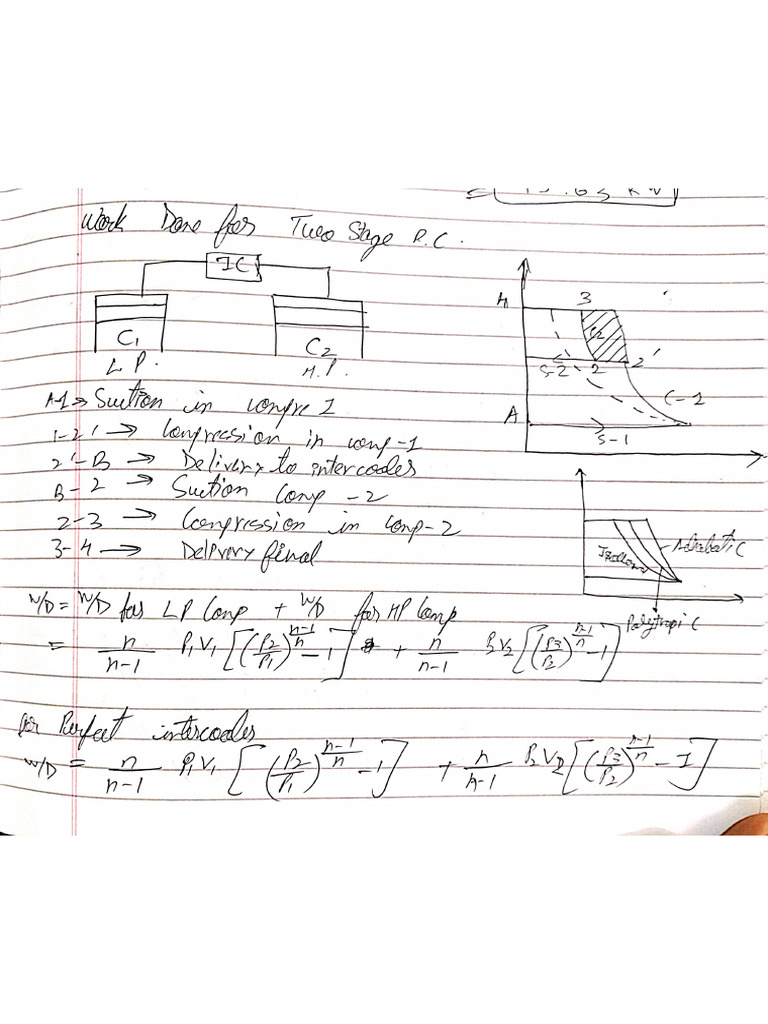 = 15.63 kW
Work Done for Two Stage R.C.
IC
C1
L P.
C2
H.P.
4 3
C2
S-2 2 2'
C-1
A
S-1
A-1 → Suction in compre 1
1-2' → Compression in comp-1
2'-B → Delivery to intercooler
B-2 → Suction Comp-2
2-3 → Compression in comp-2
3-4 → Delivery final
Adiabatic C
Isothermal
Polytropic C
W/D = W/D for LP Comp + W/D for HP Comp
= n/(n-1) P1V1 [(P2/P1)^((n-1)/n) - 1] + n/(n-1) P2V2 [(P3/P2)^((n-1)/n) - 1]
for Perfect intercooler
W/D = n/(n-1) P1V1 [(P2/P1)^((n-1)/n) - 1] + n/(n-1) P2V2 [(P3/P2)^((n-1)/n) - 1]